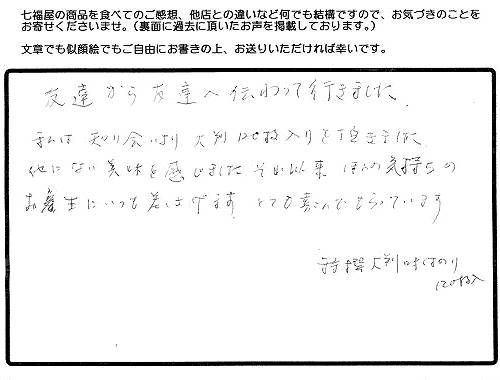 七福屋の商品を食べてのご感想、他店との違いなど何でも結構ですので、お気づきのことを
お寄せくださいませ。（裏面に過去に頂いたお声を掲載しております。）
文章でも似顔絵でもご自由にお書きの上、お送りいただければ幸いです。
友達から友達へ伝わって行きました
私は知り合いより大判120枚入りを頂きました
他にない美味を感じました それ以来 ほんの気持ちの
お産土にいつも差上げます とても喜んでもらっています
特撰大判味のり
120枚入